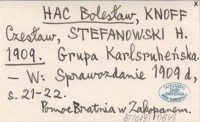 HAC Bolesław, KNOFF
Czesław, STEFANOWSKI H.
1909. Grupa Karlsruheńska.
— W: Sprawozdanie 1909 d,
s. 21-22.
Pomoc Bratnia w Zakopanem.